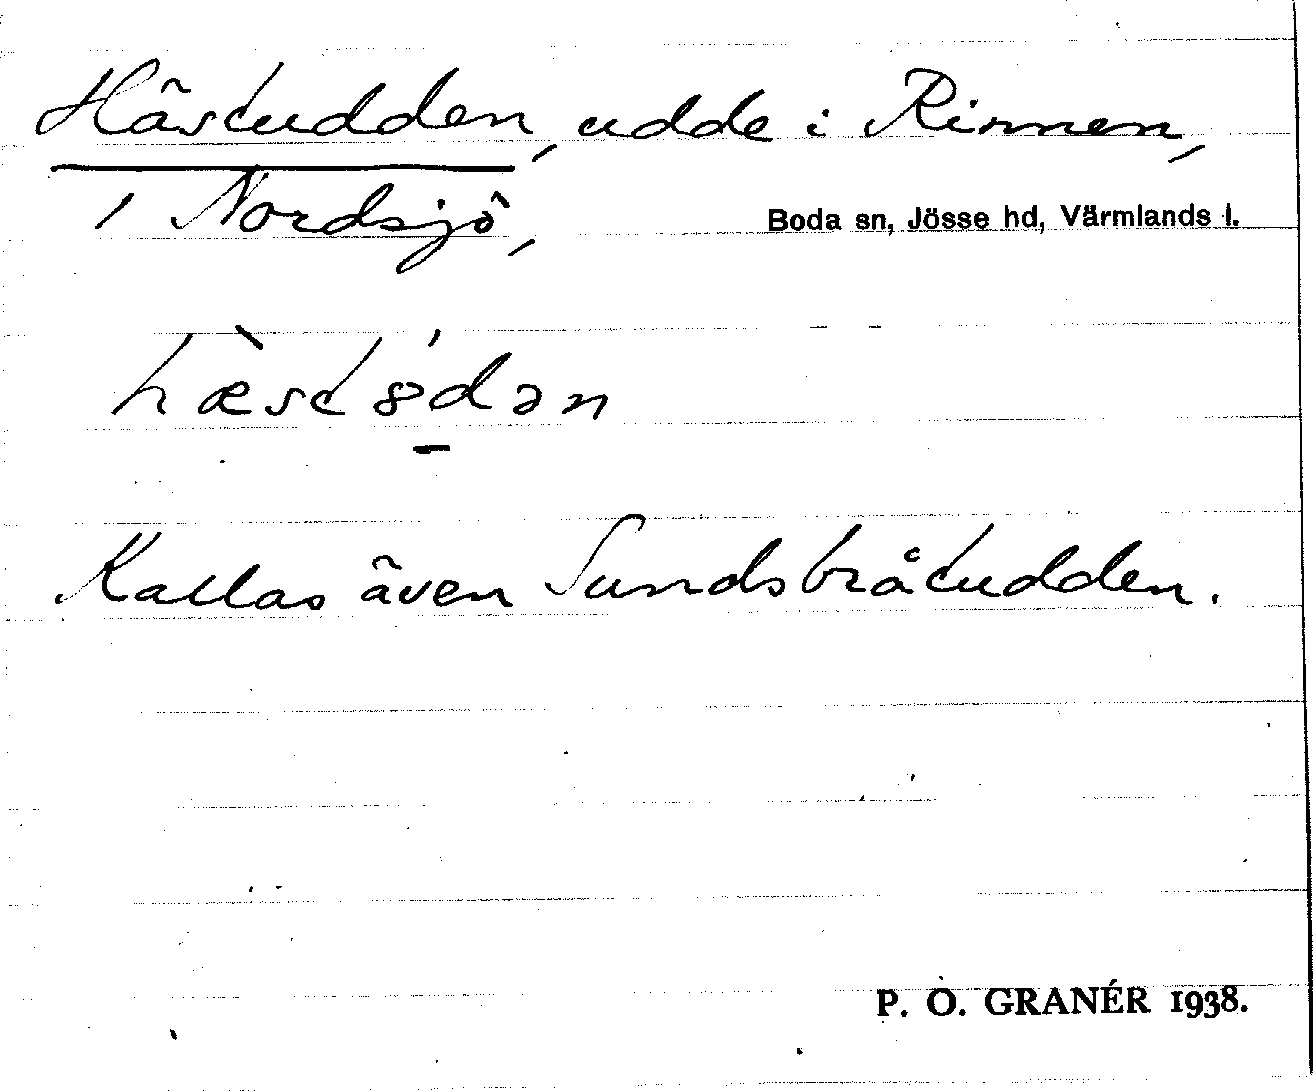 Hästudden, udde i Rinnen,
i Nordsjö, Boda sn, Jösse hd, Värmlands l.
hæ̀st8́dən
Kallas även Sundsbråtudden.
P. O. GRANÉR 1938.